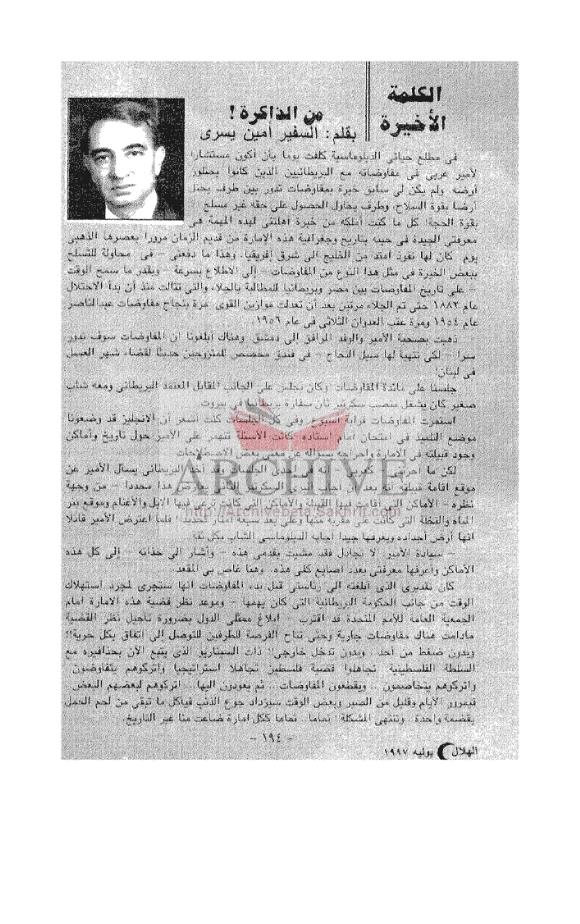 الكلمة
الأخيرة
من الذاكرة !
بقلم: السفير أمين يسرى
فى مطلع حياتى الدبلوماسية كلفت يوما بأن أكون مستشارا
لأمير عربى فى مفاوضاته مع البريطانيين الذين كانوا يحتلون
أرضه ولم يكن لى سابق خبرة بمفاوضات تدور بين طرف يحتل
أرضا بقوة السلاح، وطرف يحاول الحصول على حقه غير مسلح إلا
بقوة الحجة! كل ما كنت أملكه من خبرة أهلتنى لهذه المهمة هى
معرفتى الجيدة فى حينه بتاريخ وجغرافية هذه الامارة من قديم الزمان مرورا بعصرها الذهبى
يوم كان لها نفوذ امتد من الخليج إلى شرق أفريقيا، وهذا ما دفعنى - فى محاولة للتسلح
ببعض الخبرة فى مثل هذا النوع من المفاوضات - إلى الاطلاع بسرعة - وبقدر ما سمح الوقت
- على تاريخ المفاوضات بين مصر وبريطانيا للمطالبة بالجلاء والتى تتالت منذ أن بدأ الاحتلال
عام ١٨٨٢ حتى تم الجلاء مرتين بعد أن تعدلت موازين القوى: مرة بنجاح مفاوضات عبدالناصر
عام ١٩٥٤ ومرة عقب العدوان الثلاثى فى عام ١٩٥٦.
ذهبت بصحبة الأمير والوفد المرافق إلى دمشق وهناك أبلغونا ان المفاوضات سوف تدور
سرا - لكى نتهيأ لها سبل النجاح - فى فندق مخصص للمتزوجين حديثا لقضاء شهر العسل
فى لبنان.
جلسنا على مائدة المفاوضات وكان يجلس على الجانب المقابل المعتمد البريطانى ومعه شاب
صغير كان يشغل منصب سكرتير ثان سفارة بريطانيا فى بيروت.
استمرت المفاوضات قرابة أسبوع وفى كل الجلسات كنت أشعر أن الانجليز قد وضعونا
موضع التلميذ فى امتحان أمام أستاذه كانت الأسئلة تنهمر على الأمير حول تاريخ وأماكن
وجود قبيلته فى الامارة وإحراجه بسؤاله عن معنى بعض الاصطلاحات
لكن ما أحرجنى كعربى فى إحدى الجلسات وقد أخذ البريطانى يسأل الأمير عن
موقع اقامة قبيلته
نظره - الأماكن التى أقامت فيها القبيلة والأماكن التى كانت ترعى فيها الابل والأغنام وموقع بئر
الماء والنخلة التى كانت على مقربة منها وعلى بعد سبعة أمتار تحديدا! فلما اعترض الأمير قائلا
انها أرض أجداده ويعرفها جيدا أجابه الدبلوماسى الشاب بكل ثقة:
- سعادة الأمير، لا تجادل فقد مشيت بقدمى هذه - وأشار الى حذائه - إلى كل هذه
الأماكن وأعرفها معرفتى بعدد أصابع كفى هذه. وهنا غاص بى المقعد.
كان تقديرى الذى أبلغته الى رئاستى قبل بدء المفاوضات انها ستجرى لمجرد استهلاك
الوقت من جانب الحكومة البريطانية التى كان يهمها - وموعد نظر قضية هذه الامارة أمام
الجمعية العامة للأمم المتحدة قد اقترب - ابلاغ ممثلى الدول بضرورة تأجيل نظر القضية
مادامت هناك مفاوضات جارية وحتى تتاح الفرصة للطرفين للتوصل إلى اتفاق بكل حرية!!
وبدون ضغط من أحد. وبدون تدخل خارجى!! ذات السيناريو الذى يتبع الآن بحذافيره مع
السلطة الفلسطينية تجاهلوا قضية فلسطين تجاهلا استراتيجيا واتركوهم يتفاوضون..
واتركوهم يتخاصمون .. ويقطعون المفاوضات... ثم يعودون اليها .. اتركوهم لبعضهم البعض.
فبمرور الأيام وقليل من الصبر وبعض الوقت سيزداد جوع الذئب فيأكل ما تبقى من لحم الحمل
بقضمة واحدة.. وتنتهى المشكلة! تماما.. تماما ككل امارة ضاعت منا عبر التاريخ.
- ١٩٤ -
الهلال يونيه ١٩٩٧
ARCHIVE
http://Archivebeta.Sakhrit.com